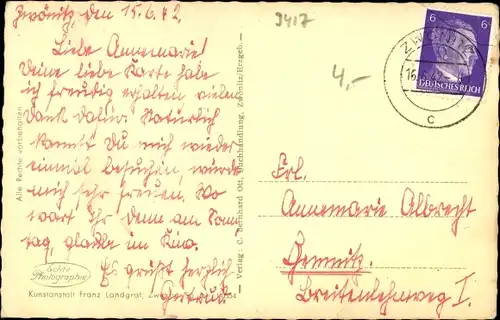 Zwönitz, den 15.6.42.
Liebe Annemarie!
Deine liebe Karte habe
ich freudig erhalten vielen
Dank dafür. Natürlich
kannst Du mich wieder
einmal besuchen, würde
mich sehr freuen. Wo
wart Ihr denn am Sonn
tag, glaube im Kino.
Es grüßt herzlich
Gertrud
9417
4,-
6 6
DEUTSCHES REICH
ZWÖNITZ
c
Frl.
Annemarie Albrecht
Chemnitz
Breitenlehnweg I.
Alle Rechte vorbehalten
Echte
Photographie
Kunstanstalt Franz Landgraf,
Verlag: C. Bernhard Ott, Buchhandlung, Zwönitz/Erzgeb.